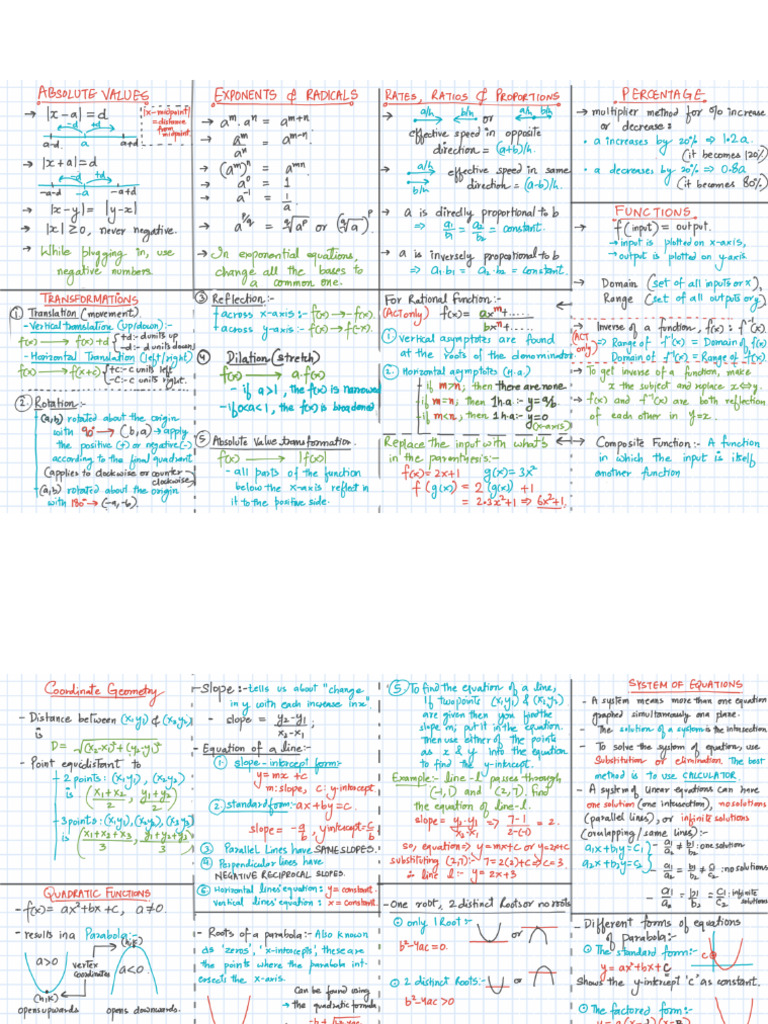 ABSOLUTE VALUES
→ |x-a| = d
|x-midpoint| = distance from midpoint
-d +d
a-d a a+d
→ |x+a| = d
-d +d
-a-d -a -a+d
→ |x-y| = |y-x|
→ |x| ≥ 0, never negative.
→ While plugging in, use
negative numbers.
EXPONENTS & RADICALS
→ a^m. a^n = a^(m+n)
→ a^m/a^n = a^(m-n)
→ (a^m)^n = a^(mn)
→ a^0 = 1
→ a^-1 = 1/a
→ a^(p/q) = q√a^p or (q√a)^p
→ In exponential equations,
change all the bases to
a common one.
RATES, RATIOS & PROPORTIONS
→ a/h b/h or a/h b/h
effective speed in opposite
direction = (a+b)/h.
→ a/h b/h effective speed in same
direction = (a-b)/h.
→ a is directly proportional to b
⇒ a1/b1 = a2/b2 = constant.
→ a is inversely proportional to b
⇒ a1.b1 = a2.b2 = constant.
PERCENTAGE
→ multiplier method for % increase
or decrease:
• a increases by 20% ⇒ 1.2a.
(it becomes 120%)
• a decreases by 20% ⇒ 0.8a
(it becomes 80%)
FUNCTIONS
→ f(input) = output.
→ input is plotted on x-axis,
→ output is plotted on y-axis
→ Domain (set of all inputs or x),
Range (set of all outputs or y)
→ Inverse of a function, f(x): f^-1(x)
(ACT only)
⇒ Range of f^-1(x) = Domain of f(x)
Domain of f^-1(x) = Range of f(x).
→ To get inverse of a function, make
x the subject and replace x↔y.
→ f(x) and f^-1(x) are both reflection
of each other in y=x.
→ Composite Function:- A function
in which the input is itself
another function
TRANSFORMATIONS
① Translation (movement)
- Vertical translation (up/down):-
f(x) → f(x)+d {+d:- d units up
-d:- d units down}
- Horizontal Translation (left/right)
f(x) → f(x+c) {+c:- c units left
-c:- c units right.
② Rotation:-
- (a,b) rotated about the origin
with 90° → (b,a) → apply
the positive (+) or negative (-)
according to the final quadrant
(applies to clockwise or counter
clockwise)
- (a,b) rotated about the origin
with 180° → (-a,-b).
③ Reflection:-
across x-axis:- f(x) → -f(x).
across y-axis:- f(x) → f(-x).
④ Dilation (stretch)
f(x) → a.f(x)
- if a>1, the f(x) is narrowed
- if 0<a<1, the f(x) is broadened
⑤ Absolute Value transformation.
f(x) → |f(x)|
- all parts of the function
below the x-axis reflect in
it to the positive side.
For Rational function:- ←
(ACT only) f(x) = ax^m+..... / bx^n+.....
① vertical asymptotes are found
at the roots of the denominator
② Horizontal asymptotes (h.a)
if m>n; then there are none
if m=n; then 1h.a:- y=a/b
if m<n; then 1h.a:- y=0
(x-axis)
Replace the input with what's ←
in the parenthesis:-
f(x) = 2x+1 g(x) = 3x²
f(g(x)) = 2(g(x)) +1
= 2.3x²+1 ⇒ 6x²+1.
Coordinate Geometry
- Distance between (x1y1) & (x2y2)
is
D = √(x2-x1)²+(y2-y1)²
- Point equidistant to
- 2 points: (x1y1), (x2y2)
is (x1+x2/2, y1+y2/2)
- 3 points: (x1y1), (x2y2), (x3y3)
is (x1+x2+x3/3, y1+y2+y3/3)
- Slope:- tells us about "change
in y with each increase in x".
- slope = y2-y1/x2-x1;
- Equation of a line:-
① slope-intercept form:-
y = mx + c
m: slope, c: y-intercept.
② standard form:- ax+by=c.
slope = -a/b, y intercept=c/b
③ Parallel Lines have SAME SLOPES.
④ Perpendicular lines have
NEGATIVE RECIPROCAL SLOPES.
⑥ Horizontal lines' equation: y = constant.
Vertical lines' equation: x = constant.
⑤ To find the equation of a line,
If two points (x1,y1) & (x2,y2)
are given then you find the
slope m; put it in the equation.
Then use either of the points
as x & y into the equation
to find the y-intercept.
Example:- line-l passes through
(-1,1) and (2,7). find
the equation of line-l.
slope = y2-y1/x2-x1 ⇒ 7-1/2-(-1) = 2.
so, equation ⇒ y=mx+c or y=2x+c
substituting (2,7):- 7=2(2)+c ⇒ c=3
∴ line l:- y = 2x+3
SYSTEM OF EQUATIONS
- A system means more than one equation
graphed simultaneously on a plane.
- The solution of a system is the intersection
- To solve the system of equation, use
Substitution or elimination. The best
method is to use CALCULATOR.
- A system of linear equations can have
one solution (one intersection), no solutions
(parallel lines), or infinite solutions
(overlapping/same lines):-
a1x+b1y=c1
a2x+b2y=c2
- a1/a2 ≠ b1/b2 : one solution
- a1/a2 = b1/b2 ≠ c1/c2 : no solutions
- a1/a2 = b1/b2 = c1/c2 : infinite
solutions
QUADRATIC FUNCTIONS
- f(x) = ax²+bx+c, a≠0.
- results in a Parabola:- (h,k)
a>0 vertex
coordinates a<0.
(h,k)
opens upwards opens downwards.
- Roots of a parabola:- Also known
as 'zeros', 'x-intercepts', these are
the points where the parabola int-
ersects the x-axis.
Can be found using
→ the quadratic formula
- One root, 2 distinct Roots or no roots
① only 1 Root:- or
b²-4ac=0.
② 2 distinct Roots:- or
b²-4ac>0
- Different forms of equations
of parabola:-
① The standard form:-
y = ax²+bx+c
c
Shows the y-intercept 'c' as constant.
② The factored form:-